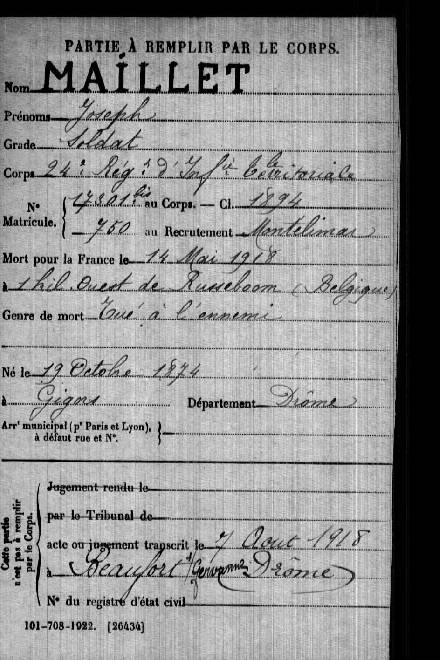 PARTIE À REMPLIR PAR LE CORPS.
Nom MAILLET
Prénoms Joseph
Grade Soldat
Corps 24e Régt d'Infie Territoriale
No Matricule. 17301bis au Corps. — Cl. 1894
750 au Recrutement Montélimar
Mort pour la France le 14 Mai 1918
à 1 kil. Ouest de Russeboom (Belgique)
Genre de mort Tué à l'ennemi
Né le 19 Octobre 1874
à Gigors Département Drôme
Arrt municipal (pr Paris et Lyon),
à défaut rue et No.
Cette partie n'est pas à remplir par le Corps.
Jugement rendu le
par le Tribunal de
acte ou jugement transcrit le 7 Août 1918
à Beaufort s/ Gervanne (Drôme)
No du registre d'état civil
101-708-1922. [26434]